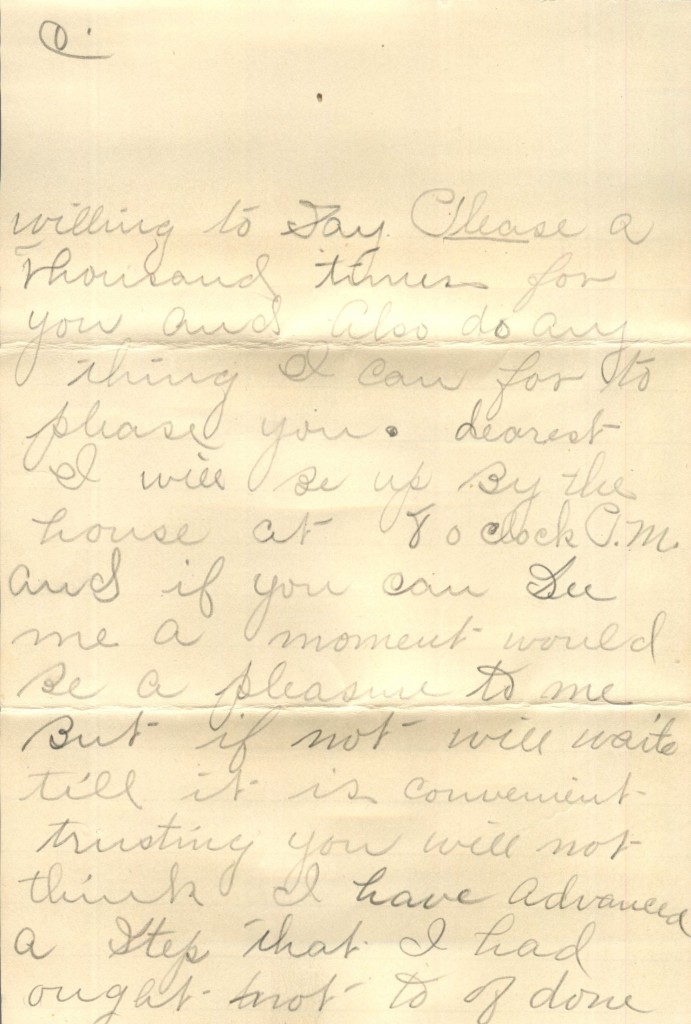 willing to Say Please a
thousand times for
you and Also do any
thing I can for to
please you. dearest
I will Be up By the
house at 8 o clock P.M.
and if you can See
me a moment would
Be a pleasure to me
But if not will waite
till it is convenient
trusting you will not
think I have advanced
a Step that I had
ought not to of done